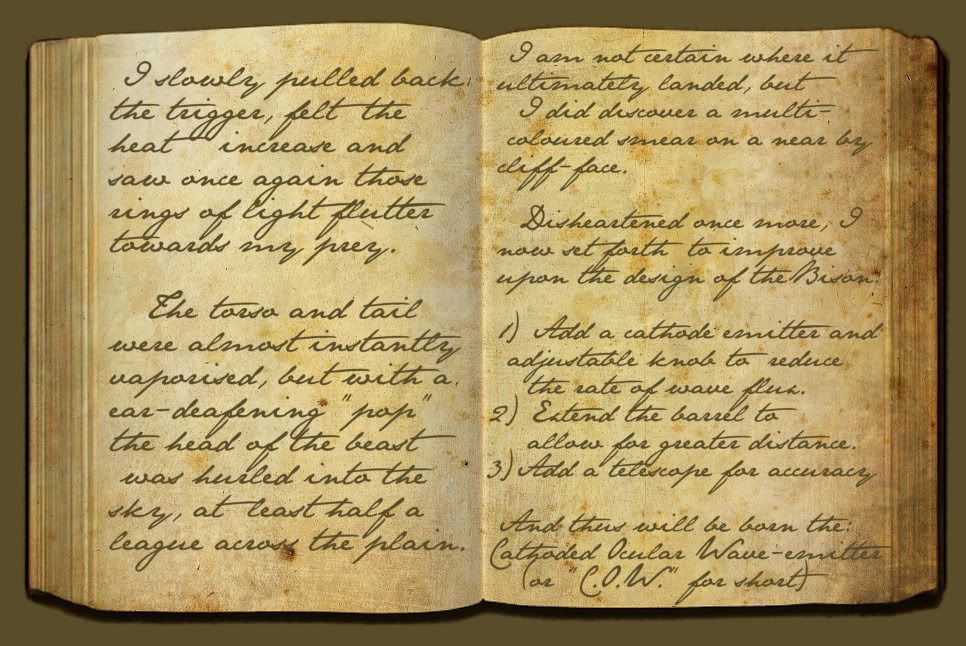 I slowly pulled back
the trigger, felt the
heat increase and
saw once again those
rings of light flutter
towards my prey.
The torso and tail
were almost instantly
vaporised, but with a
ear-deafening "pop"
the head of the beast
was hurled into the
sky, at least half a
league across the plain.
I am not certain where it
ultimately landed, but
I did discover a multi-
coloured smear on a near by
cliff-face.
Disheartened once more, I
now set forth to improve
upon the design of the Bison.
1) Add a cathode emitter and
adjustable knob to reduce
the rate of wave flux.
2) Extend the barrel to
allow for greater distance.
3) Add a telescope for accuracy
And thus will be born the:
Cathoded Ocular Wave-emitter
(or "C.O.W." for short)